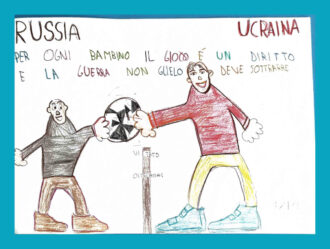 RUSSIA UCRAINA
PER OGNI BAMBINO IL GIOCO É UN DIRITTO
E LA GUERRA NON GLIELO DEVE SOTTRARRE